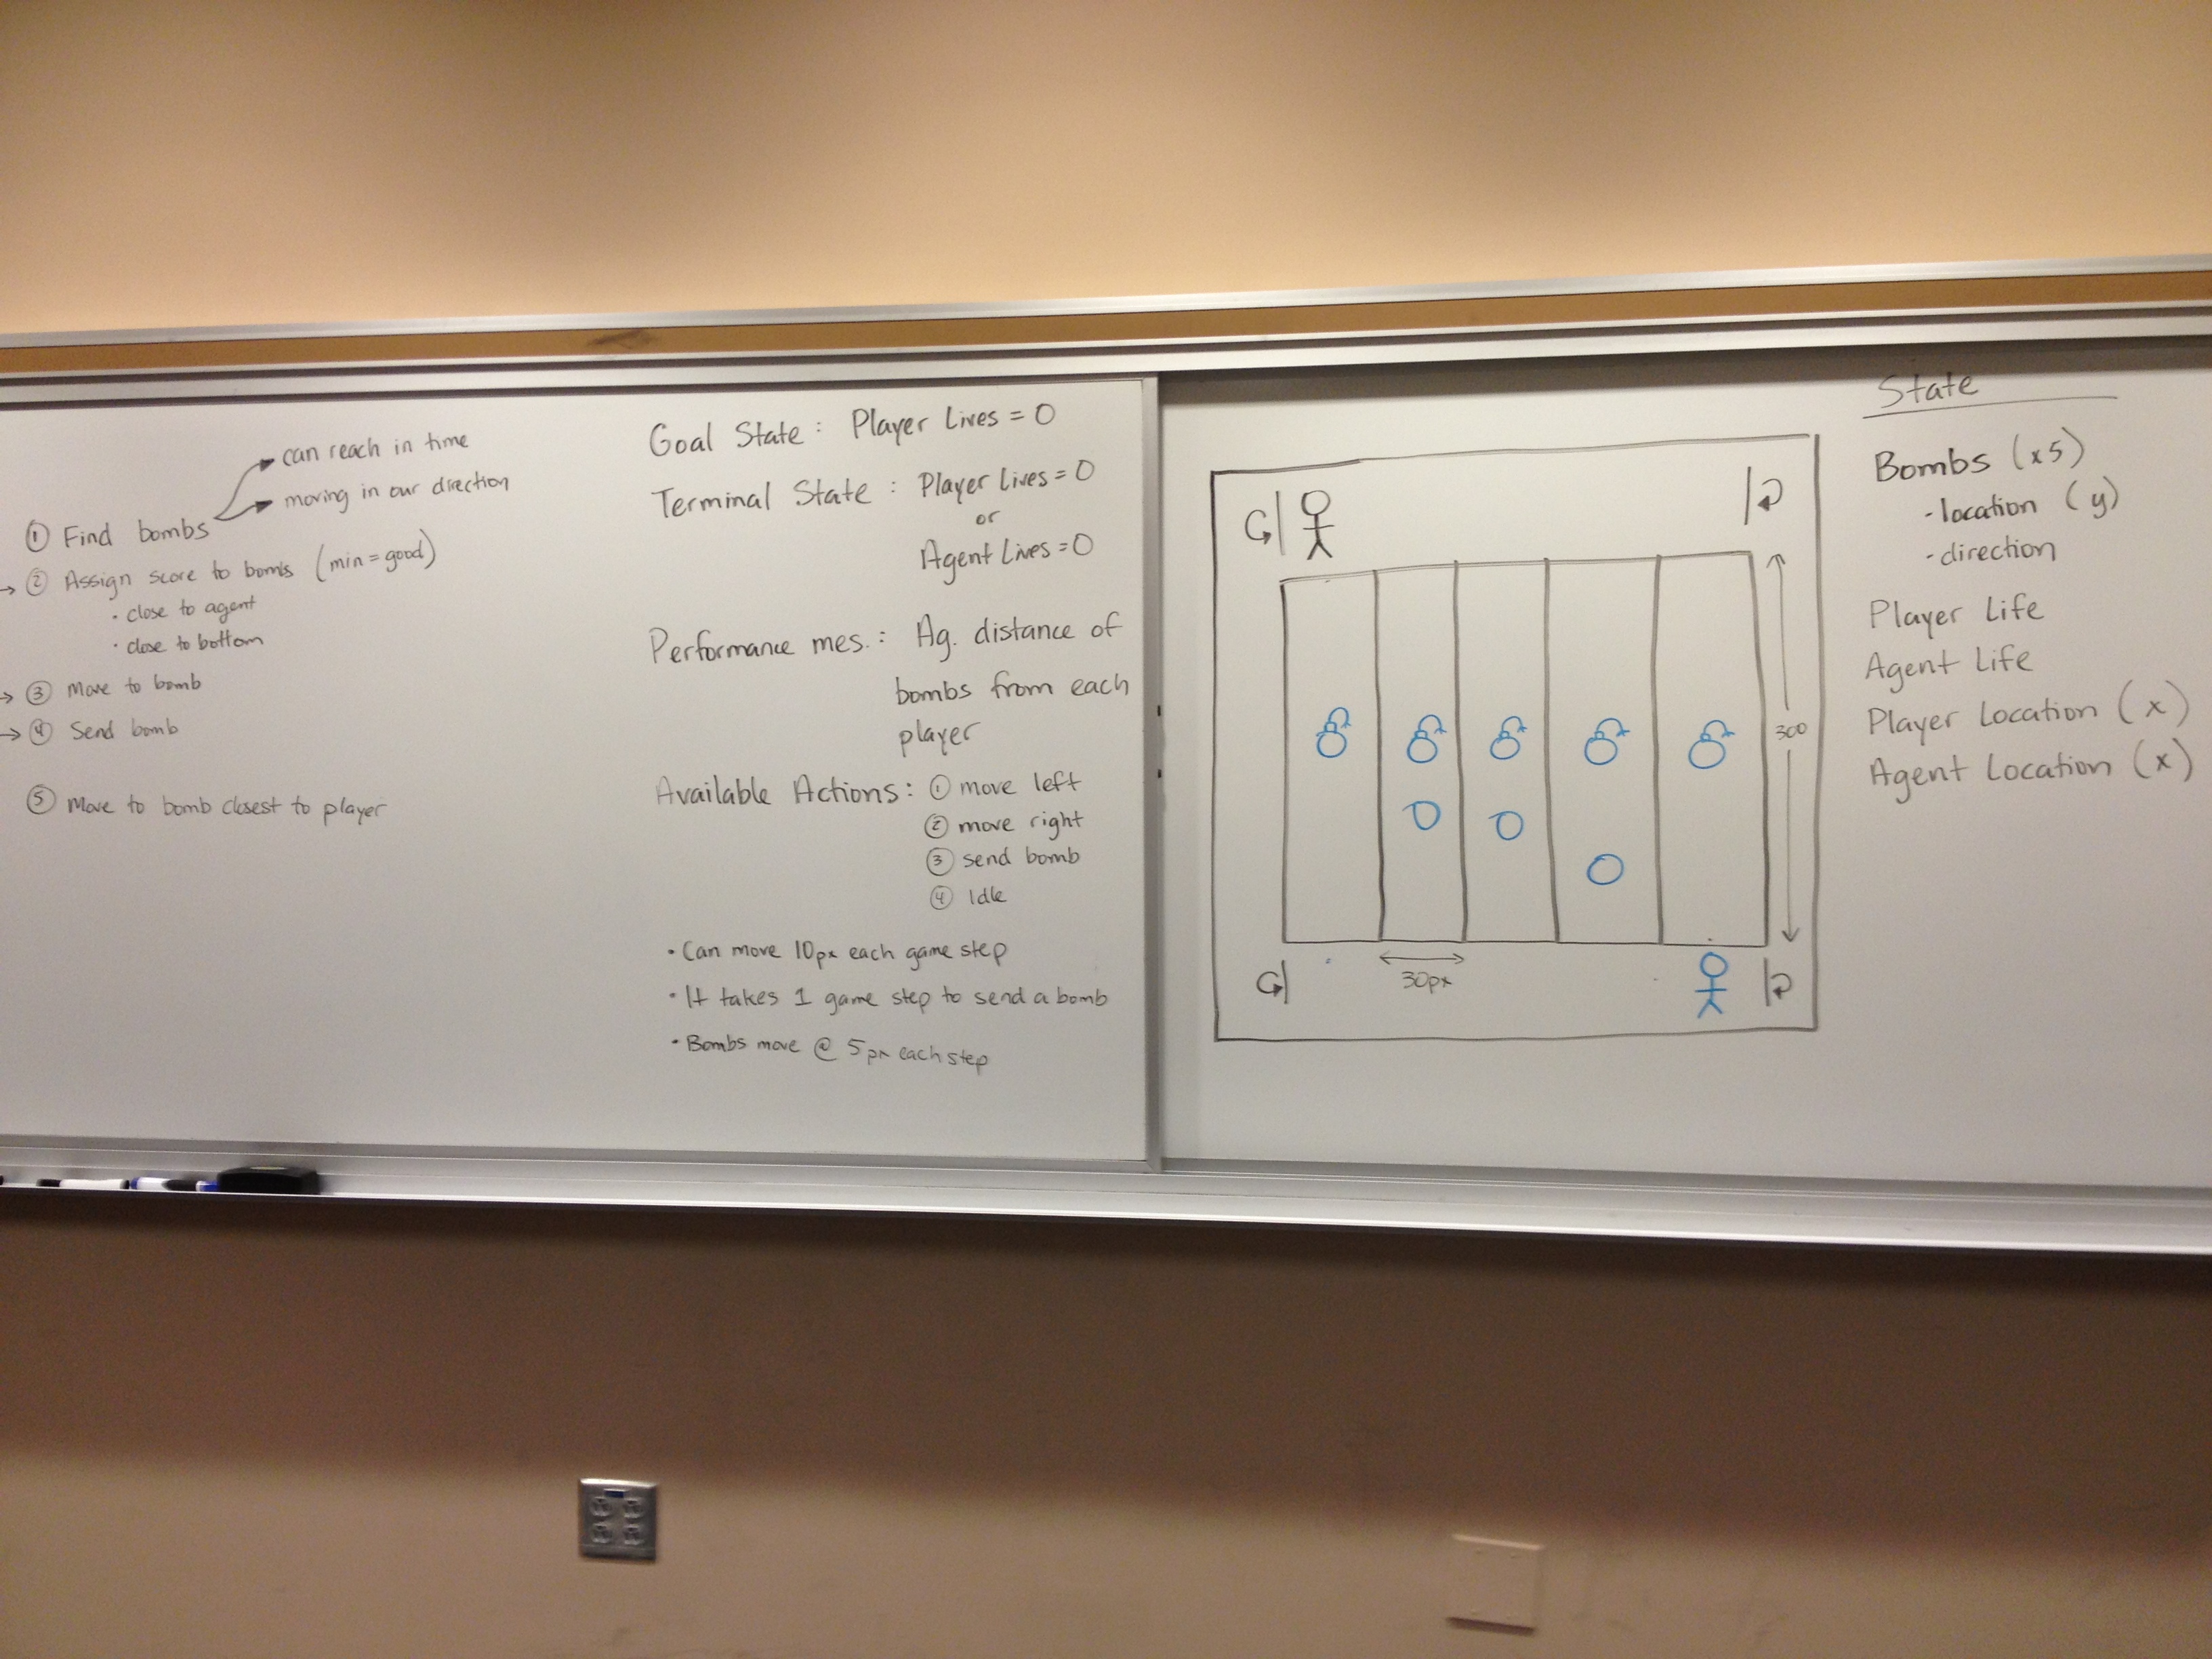 can reach in time
moving in our direction
① Find bombs
→ ② Assign score to bombs (min = good)
· close to agent
· close to bottom
→ ③ Move to bomb
→ ④ Send bomb
⑤ Move to bomb closest to player
Goal State: Player Lives = 0
Terminal State: Player Lives = 0
or
Agent Lives = 0
Performance mes.: Ag. distance of
bombs from each
player
Available Actions: ① move left
② move right
③ send bomb
④ Idle
· Can move 10px each game step
· It takes 1 game step to send a bomb
· Bombs move @ 5px each step
300
30px
State
Bombs (x5)
- location (y)
- direction
Player Life
Agent Life
Player Location (x)
Agent Location (x)